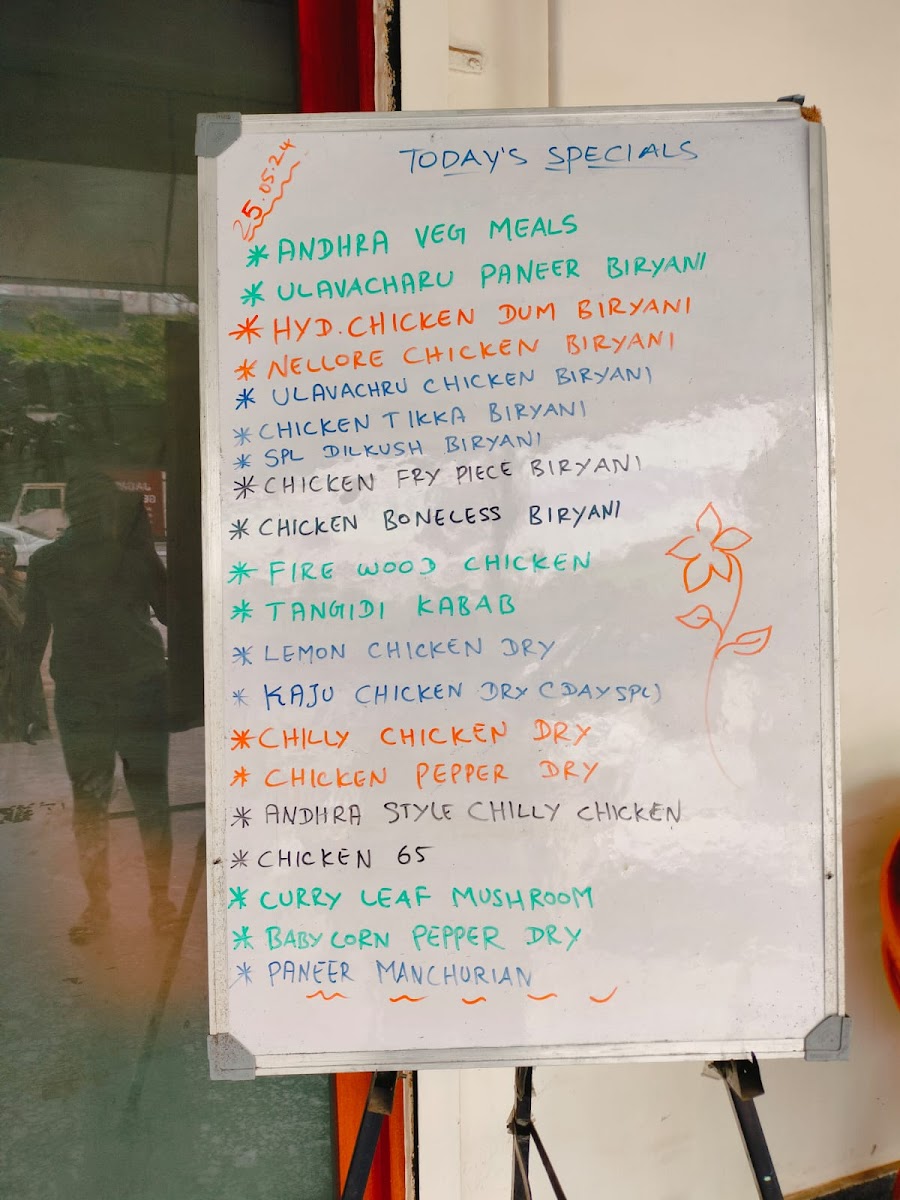 TODAY'S SPECIALS
25.05.24
* ANDHRA VEG MEALS
* ULAVACHARU PANEER BIRYANI
* HYD. CHICKEN DUM BIRYANI
* NELLORE CHICKEN BIRYANI
* ULAVACHRU CHICKEN BIRYANI
* CHICKEN TIKKA BIRYANI
* SPL DILKUSH BIRYANI
* CHICKEN FRY PIECE BIRYANI
* CHICKEN BONELESS BIRYANI
* FIRE WOOD CHICKEN
* TANGIDI KABAB
* LEMON CHICKEN DRY
* KAJU CHICKEN DRY (DAY SPL)
* CHILLY CHICKEN DRY
* CHICKEN PEPPER DRY
* ANDHRA STYLE CHILLY CHICKEN
* CHICKEN 65
* CURRY LEAF MUSHROOM
* BABY CORN PEPPER DRY
* PANEER MANCHURIAN